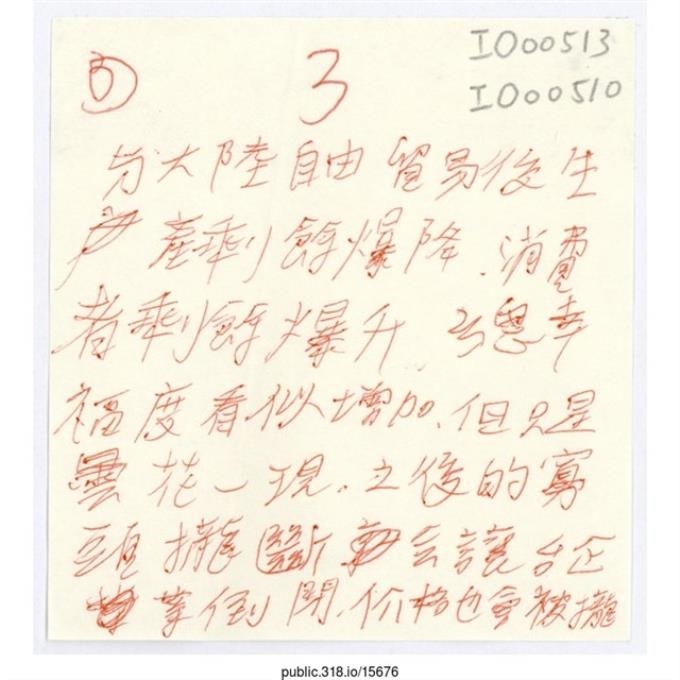 IO00513
③ 3
IO00510
与大陸自由貿易後生
產剩餘爆降.消費
者剩餘爆升.总幸
福度看似增加,但只是
曇花一現.之後的寡
頭攏斷会讓台企
業倒閉.价格也會被攏
public.318.io/15676